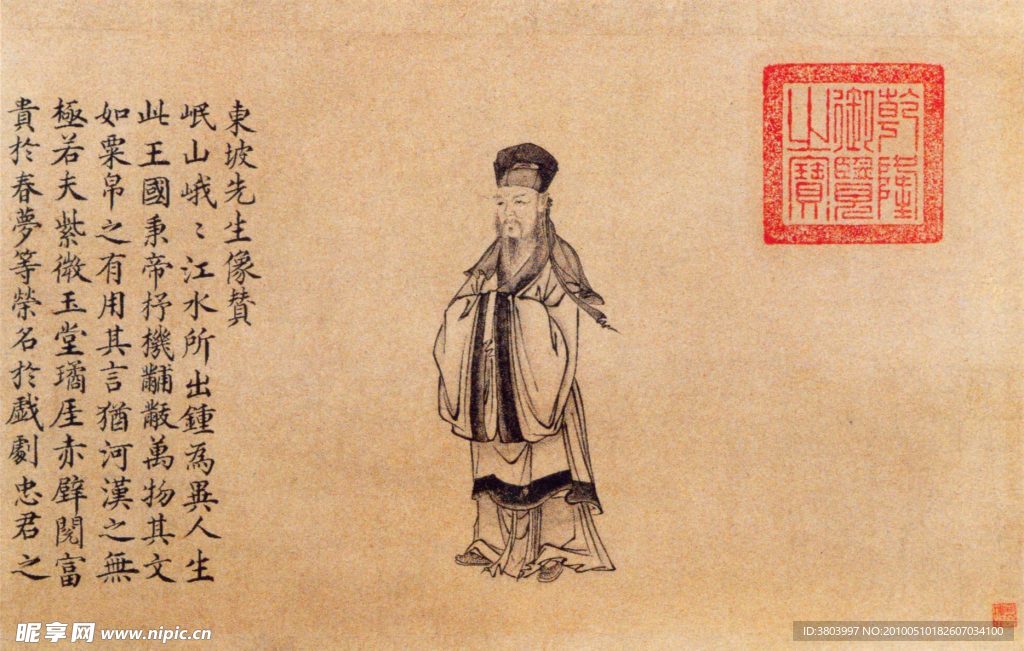 乾隆
御覽
之寶
東坡先生像賛
岷山峨〻江水所出鍾為異人生
此王國秉帝杼機黼黻萬物其文
如粟帛之有用其言猶河漢之無
極若夫紫微玉堂璚厓赤壁閱富
貴於春夢等榮名於戲劇忠君之
昵享网 www.nipic.cn
ID:3803997 NO:20100510182607034100